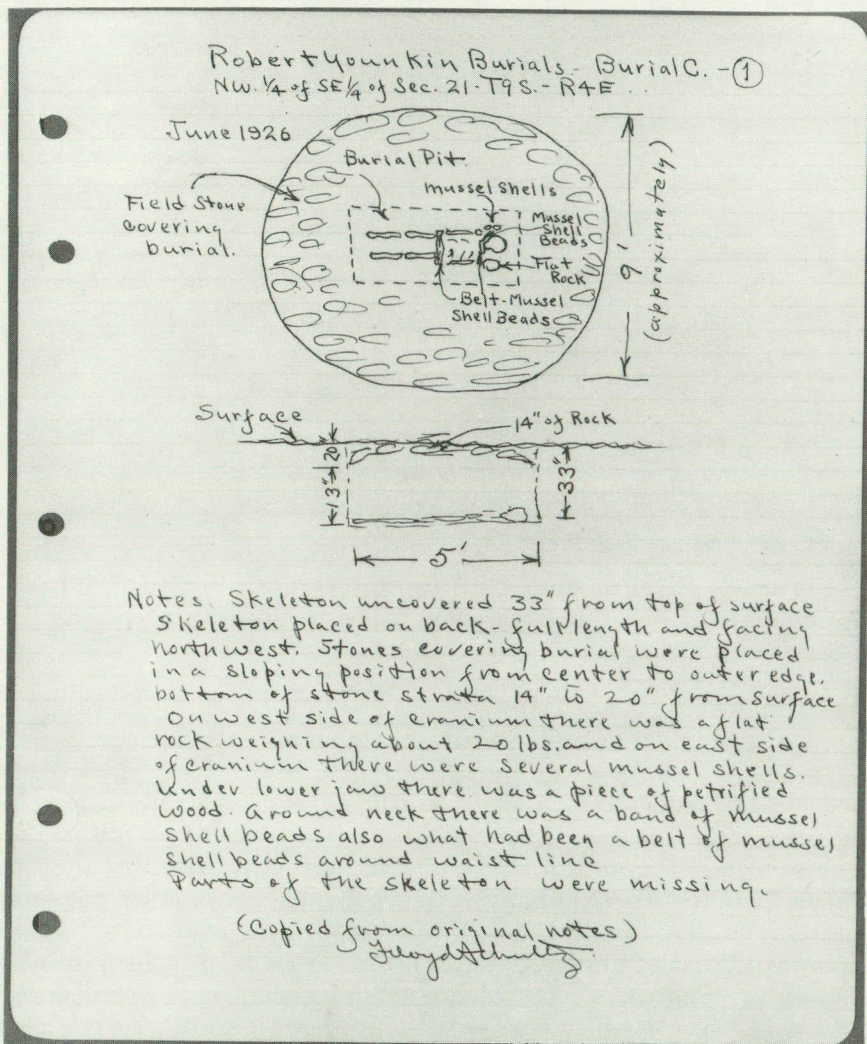 Robert Younkin Burials - Burial C. - ①
NW. ¼ of SE ¼ of Sec. 21 - T9S. - R4E ..
June 1926
Burial Pit.
mussel shells
Field Stone
covering
burial.
Mussel
Shell
Beads
Flat
Rock
Belt-Mussel
Shell Beads
9'
(approximately)
Surface
14" of Rock
20
13"
33"
5'
Notes. Skeleton uncovered 33" from top of surface
Skeleton placed on back - full length and facing
northwest. Stones covering burial were placed
in a sloping position from center to outer edge.
bottom of stone strata 14" to 20" from surface
On west side of cranium there was a flat
rock weighing about 20 lbs. and on east side
of cranium there were several mussel shells.
Under lower jaw there was a piece of petrified
wood. Around neck there was a band of mussel
shell beads also what had been a belt of mussel
shell beads around waist line
Parts of the skeleton were missing.
(Copied from original notes)
Floyd Schultz.